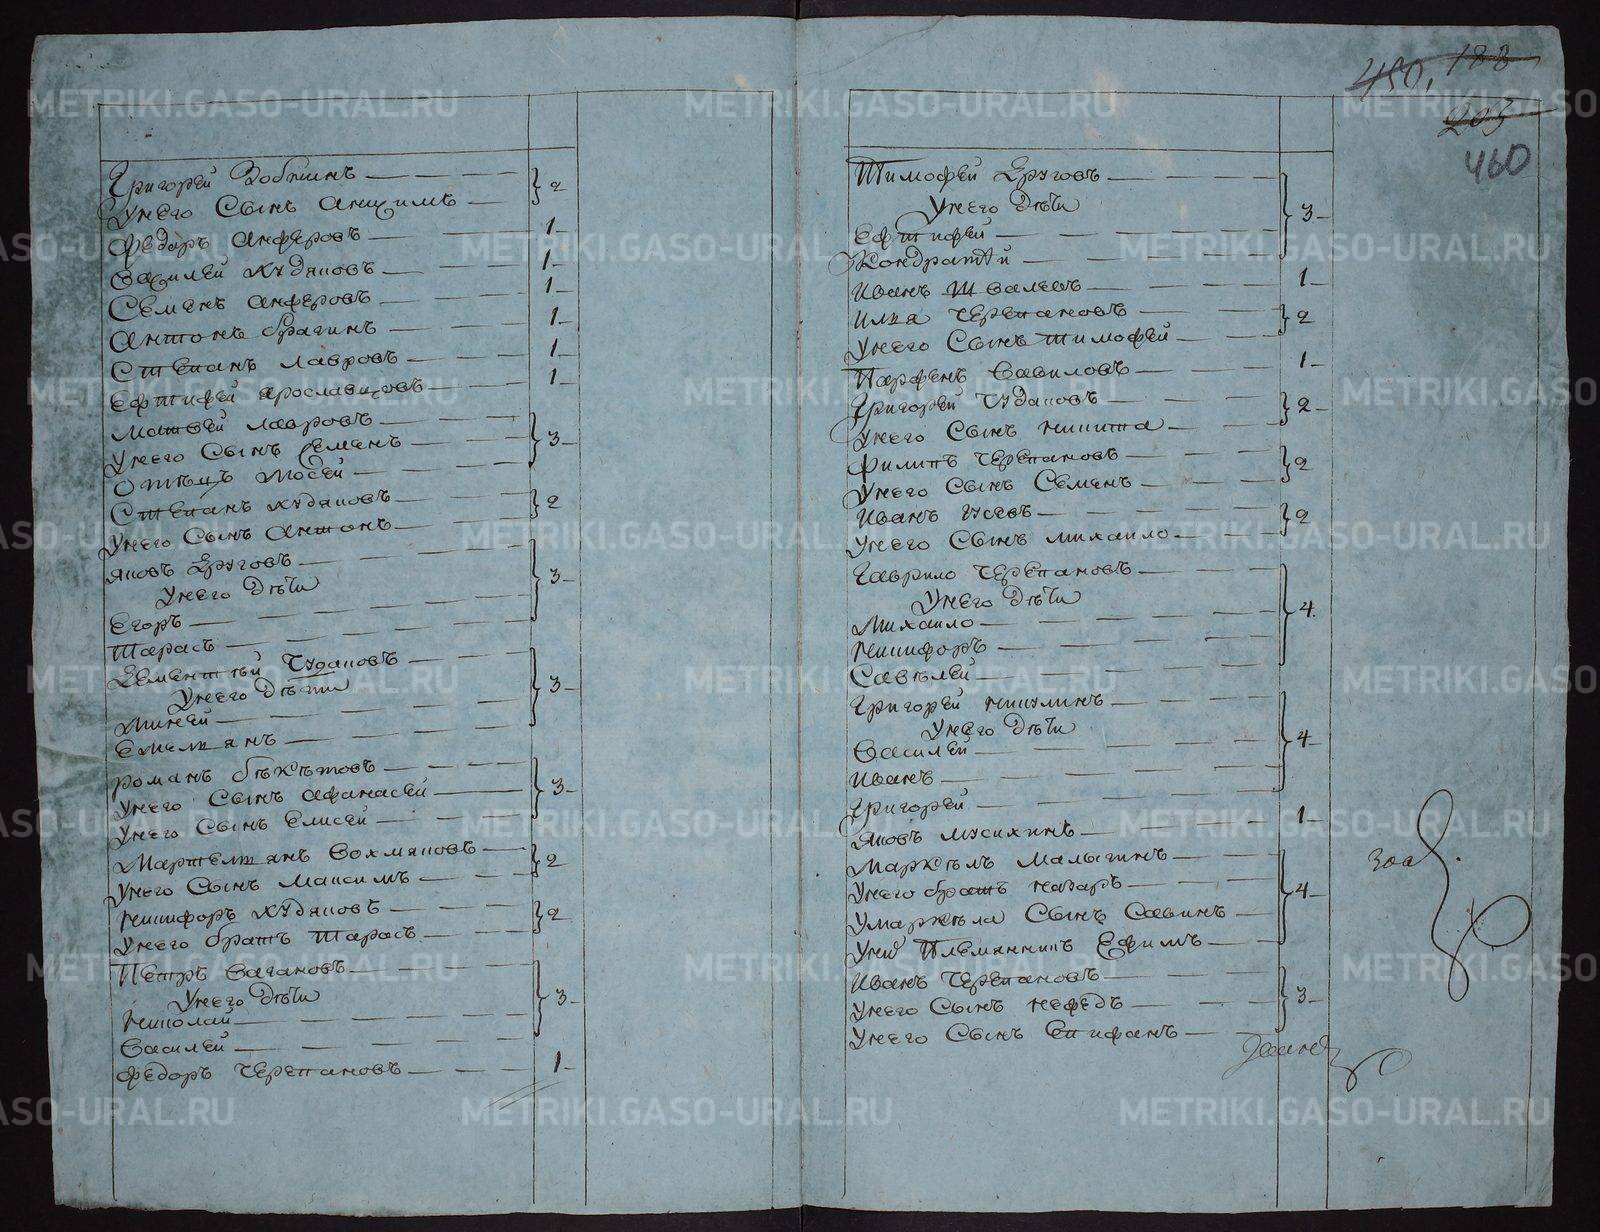 Григорей Зобнинъ
Унего Сынъ Анцимъ
Федаръ Анферовъ 1
Василей Худяковъ 1
Семенъ Анферовъ 1
Антонъ Брагинъ 1
Степанъ Лавровъ 1
Ефтифей Ярославцовъ 1
Матвей Лавровъ
Унего Сынъ Семенъ 3
Отецъ Мосей
Степанъ Худяковъ 2
Унего Сынъ Антонъ
Яковъ Ерговъ
Унего Дѣти 3
Егоръ
Тарасъ
Чудаковъ
Унего Дѣти 3
Миней
Емельянъ
Романъ Бѣкѣтовъ
Унего Сынъ Афанасей 3
Унего Сынъ Елисей
Мартемьянъ Вохмяковъ 2
Унего Сынъ Максимъ
Никифоръ Худяковъ 2
Унего братъ Тарасъ
Петръ Вагановъ
Унего Дѣти 3
Николай
Василей
Федоръ Черепановъ 1
450. 188
205
460
Тимофей Ерговъ
Унего Дѣти 3
Ефтифей
Кондратей
Иванъ Швалевъ 1
Илья Черепановъ 2
Унего Сынъ Тимофей
Парфенъ Вавиловъ 1
Григорей Чудаковъ 2
Унего Сынъ Никита
Филипъ Черепановъ 2
Унего Сынъ Семенъ
Иванъ Гусевъ 2
Унего Сынъ Михаило
Гаврило Черепановъ
Унего Дѣти 4
Михаило
Никифоръ
Савѣлей
Григорей Никулинъ
Унего Дѣти 4
Василей
Иванъ
Григорей
Яковъ Мусихинъ 1
Маркѣлъ Малыгинъ
Унего братъ Назаръ 4
Умаркѣла Сынъ Савинъ
Племянникъ Ефимъ
Иванъ Черепановъ
Унего Сынъ Нефедъ 3
Унего Сынъ Епифанъ
METRIKI.GASO-URAL.RU